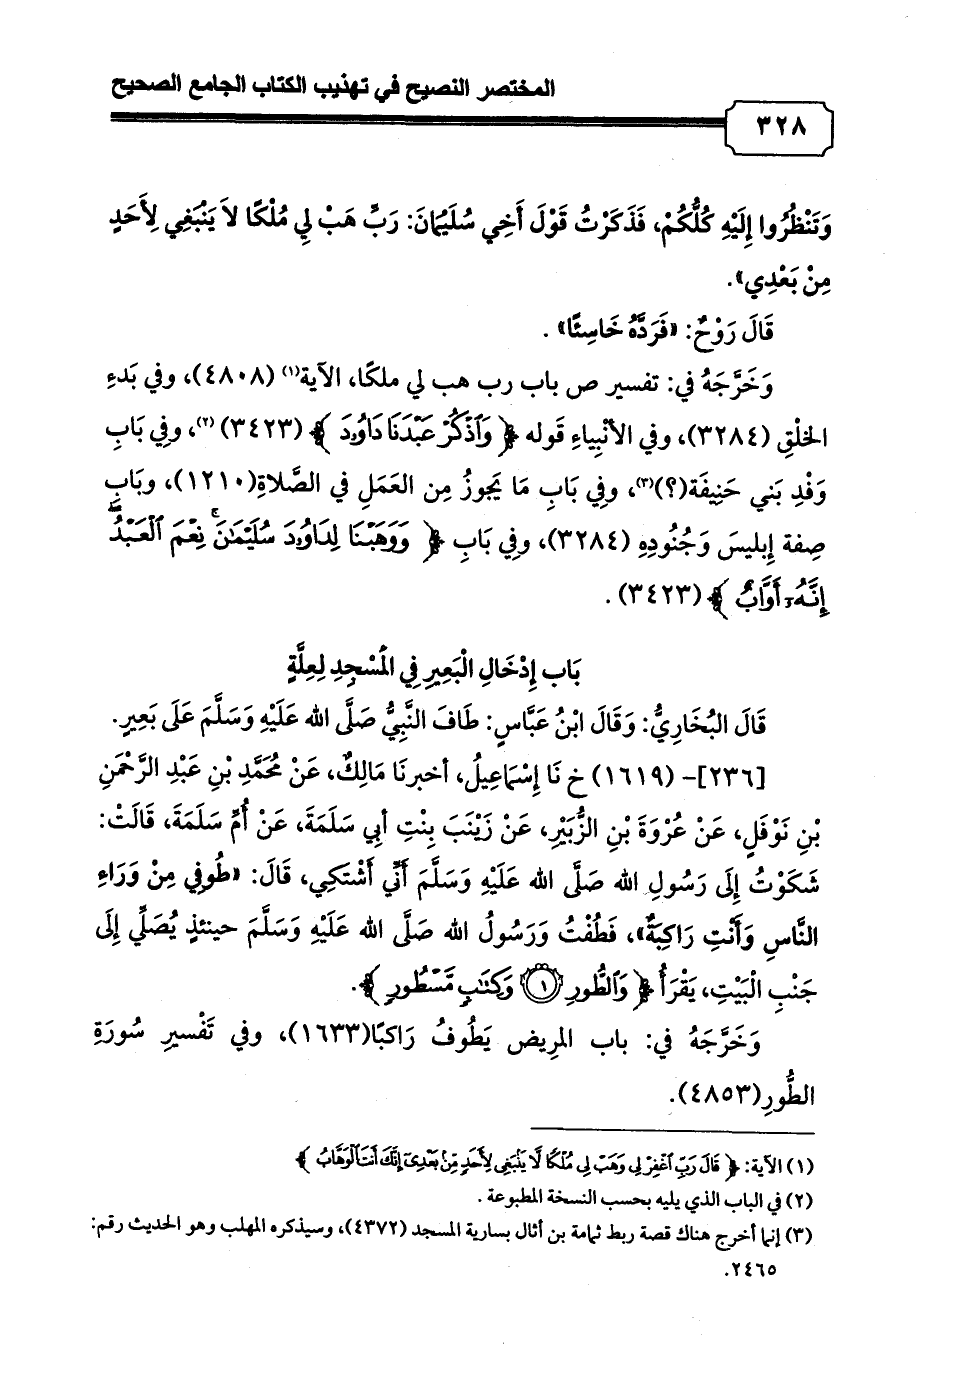 المختصر النصيح في تهذيب الكتاب الجامع الصحيح
٣٢٨
وَتَنْظُرُوا إِلَيْهِ كُلُّكُمْ، فَذَكَرْتُ قَوْلَ أَخِي سُلَيْمَانَ: رَبِّ هَبْ لِي مُلْكًا لاَ يَنْبَغِي لِأَحَدٍ
مِنْ بَعْدِي».
قَالَ رَوْحٌ: «فَرَدَّهُ خَاسِئًا» .
وَخَرَّجَهُ في: تفسير ص باب رب هب لي ملكا، الآية(١) (٤٨٠٨)، وفي بَدءِ
الخلْقِ (٣٢٨٤)، وفي الأنْبِياءِ قَوله ﴿ وَاذْكُرْ عَبْدَنَا دَاوُودَ ﴾ (٣٤٢٣)(٢)، وفِي بَابِ
وَفْدِ بَني حَنِيفَة(؟)(٣)، وفِي بَابِ مَا يَجوزُ مِن العَمَلِ في الصَّلاةِ(١٢١٠)، وبَابِ
صِفة إِبليسَ وَجُنُودِهِ (٣٢٨٤)، وفِي بَابِ ﴿ وَوَهَبْنَا لِدَاوُۥدَ سُلَيْمَٰنَۚ نِعْمَ الْعَبْدُۖ
إِنَّهُۥٓ أَوَّابٌ ﴾ (٣٤٢٣).
بَاب إِدْخَالِ الْبَعِيرِ فِي الْمَسْجِدِ لِعِلَّةٍ
قَالَ البُخَارِيُّ: وَقَالَ ابْنُ عَبَّاسٍ: طَافَ النَّبِيُّ صَلَّى الله عَلَيْهِ وَسَلَّمَ عَلَى بَعِيرٍ.
[٢٣٦]- (١٦١٩) خ نَا إِسْمَاعِيلُ، أخبرنَا مَالِكٌ، عَنْ مُحَمَّدِ بْنِ عَبْدِ الرَّحْمَنِ
بْنِ نَوْفَلٍ، عَنْ عُرْوَةَ بْنِ الزُّبَيْرِ، عَنْ زَيْنَبَ بِنْتِ أبِي سَلَمَةَ، عَنْ أُمِّ سَلَمَةَ، قَالَتْ:
شَكَوْتُ إِلَى رَسُولِ الله صَلَّى الله عَلَيْهِ وَسَلَّمَ أَنِّي أَشْتَكِي، قَالَ: «طُوفِي مِنْ وَرَاءِ
النَّاسِ وَأَنْتِ رَاكِبَةٌ»، فَطُفْتُ وَرَسُولُ الله صَلَّى الله عَلَيْهِ وَسَلَّمَ حينئذٍ يُصَلِّي إِلَى
جَنْبِ الْبَيْتِ، يَقْرَأُ ﴿ وَالطُّورِ ١ وَكِتَٰبٍ مَّسْطُورٍ ﴾.
وَخَرَّجَهُ في: باب المرِيض يَطُوفُ رَاكبًا(١٦٣٣)، وفي تَفْسيرِ سُورَةِ
الطُّورِ(٤٨٥٣).
(١) الآية: ﴿ قَالَ رَبِّ اغْفِرْ لِي وَهَبْ لِي مُلْكًا لَّا يَنْبَغِي لِأَحَدٍ مِّنْ بَعْدِيٓ إِنَّكَ أَنتَ الْوَهَّابُ ﴾
(٢) في الباب الذي يليه بحسب النسخة المطبوعة .
(٣) إنما أخرج هناك قصة ربط ثمامة بن أثال بسارية المسجد (٤٣٧٢)، وسيذكره المهلب وهو الحديث رقم:
٢٤٦٥.